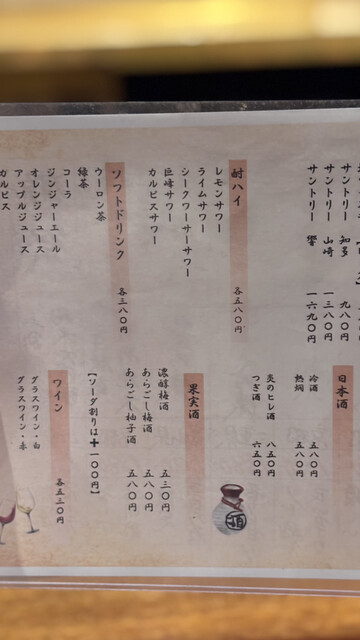 サントリー 知多 九八〇円
サントリー 山崎 一三八〇円
サントリー 響 一六九〇円
酎ハイ 各五八〇円
レモンサワー
ライムサワー
シークワーサーサワー
巨峰サワー
カルピスサワー
ソフトドリンク 各三八〇円
ウーロン茶
緑茶
コーラ
ジンジャーエール
オレンジジュース
アップルジュース
カルピス
日本酒
冷酒 五八〇円
熱燗 五八〇円
炎のヒレ酒 八五〇円
つぎ酒 六五〇円
酒
果実酒
濃醇梅酒 五三〇円
あらごし梅酒 五八〇円
あらごし柚子酒 五八〇円
【ソーダ割りは＋一〇〇円】
ワイン 各五三〇円
グラスワイン・白
グラスワイン・赤